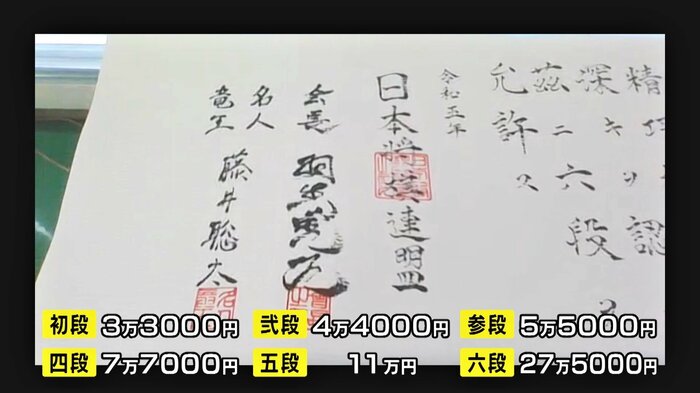 精
深キヲ認
茲ニ六段ヲ
允許ス
令和五年
日本将棋連盟
会長 羽生善治
名人
竜王 藤井聡太
初段 3万3000円 弐段 4万4000円 参段 5万5000円
四段 7万7000円 五段 11万円 六段 27万5000円